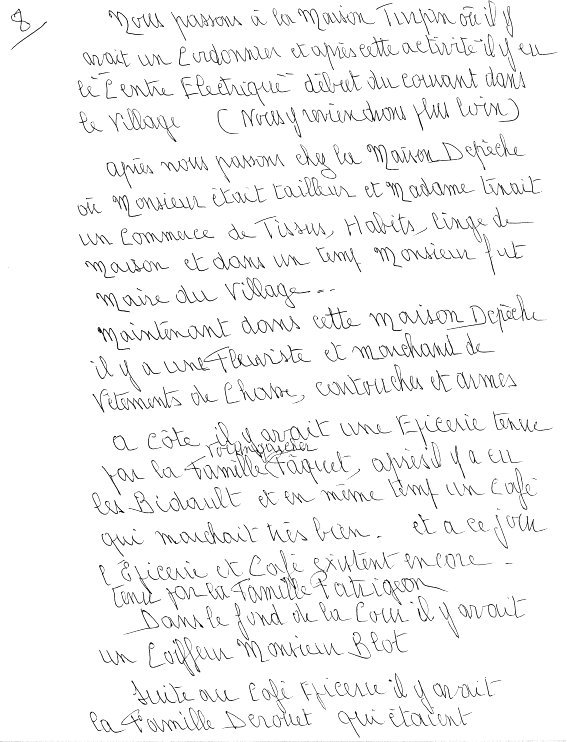 8
Nous passons à la Maison Turpin où il y
avait un Cordonnier et après cette activité il y eu
le "Centre Electrique" début du courant dans
le Village (Nous y reviendrons plus loin)
après nous passons chez la Maison Depèche
où Monsieur était tailleur et Madame tenait
un Commerce de Tissus, Habits, linge de
Maison et dans un temp Monsieur fut
Maire du Village...
Maintenant dans cette maison Depèche
il y a une Fleuriste et marchand de
Vêtements de Chasse, cartouches et armes
a côté il y avait une Epicerie tenue
par la Famille Pâquet, après il y a eu
les Bidault et en même temp un Café
qui marchait très bien. et a ce jour
l'Epicerie et Café existent encore.
tenu par la Famille Patrigeon
Dans le fond de la Cour il y avait
un Coiffeur Monsieur Blot
Suite au Café Epicerie il y avait
la Famille Derouet qui étaient